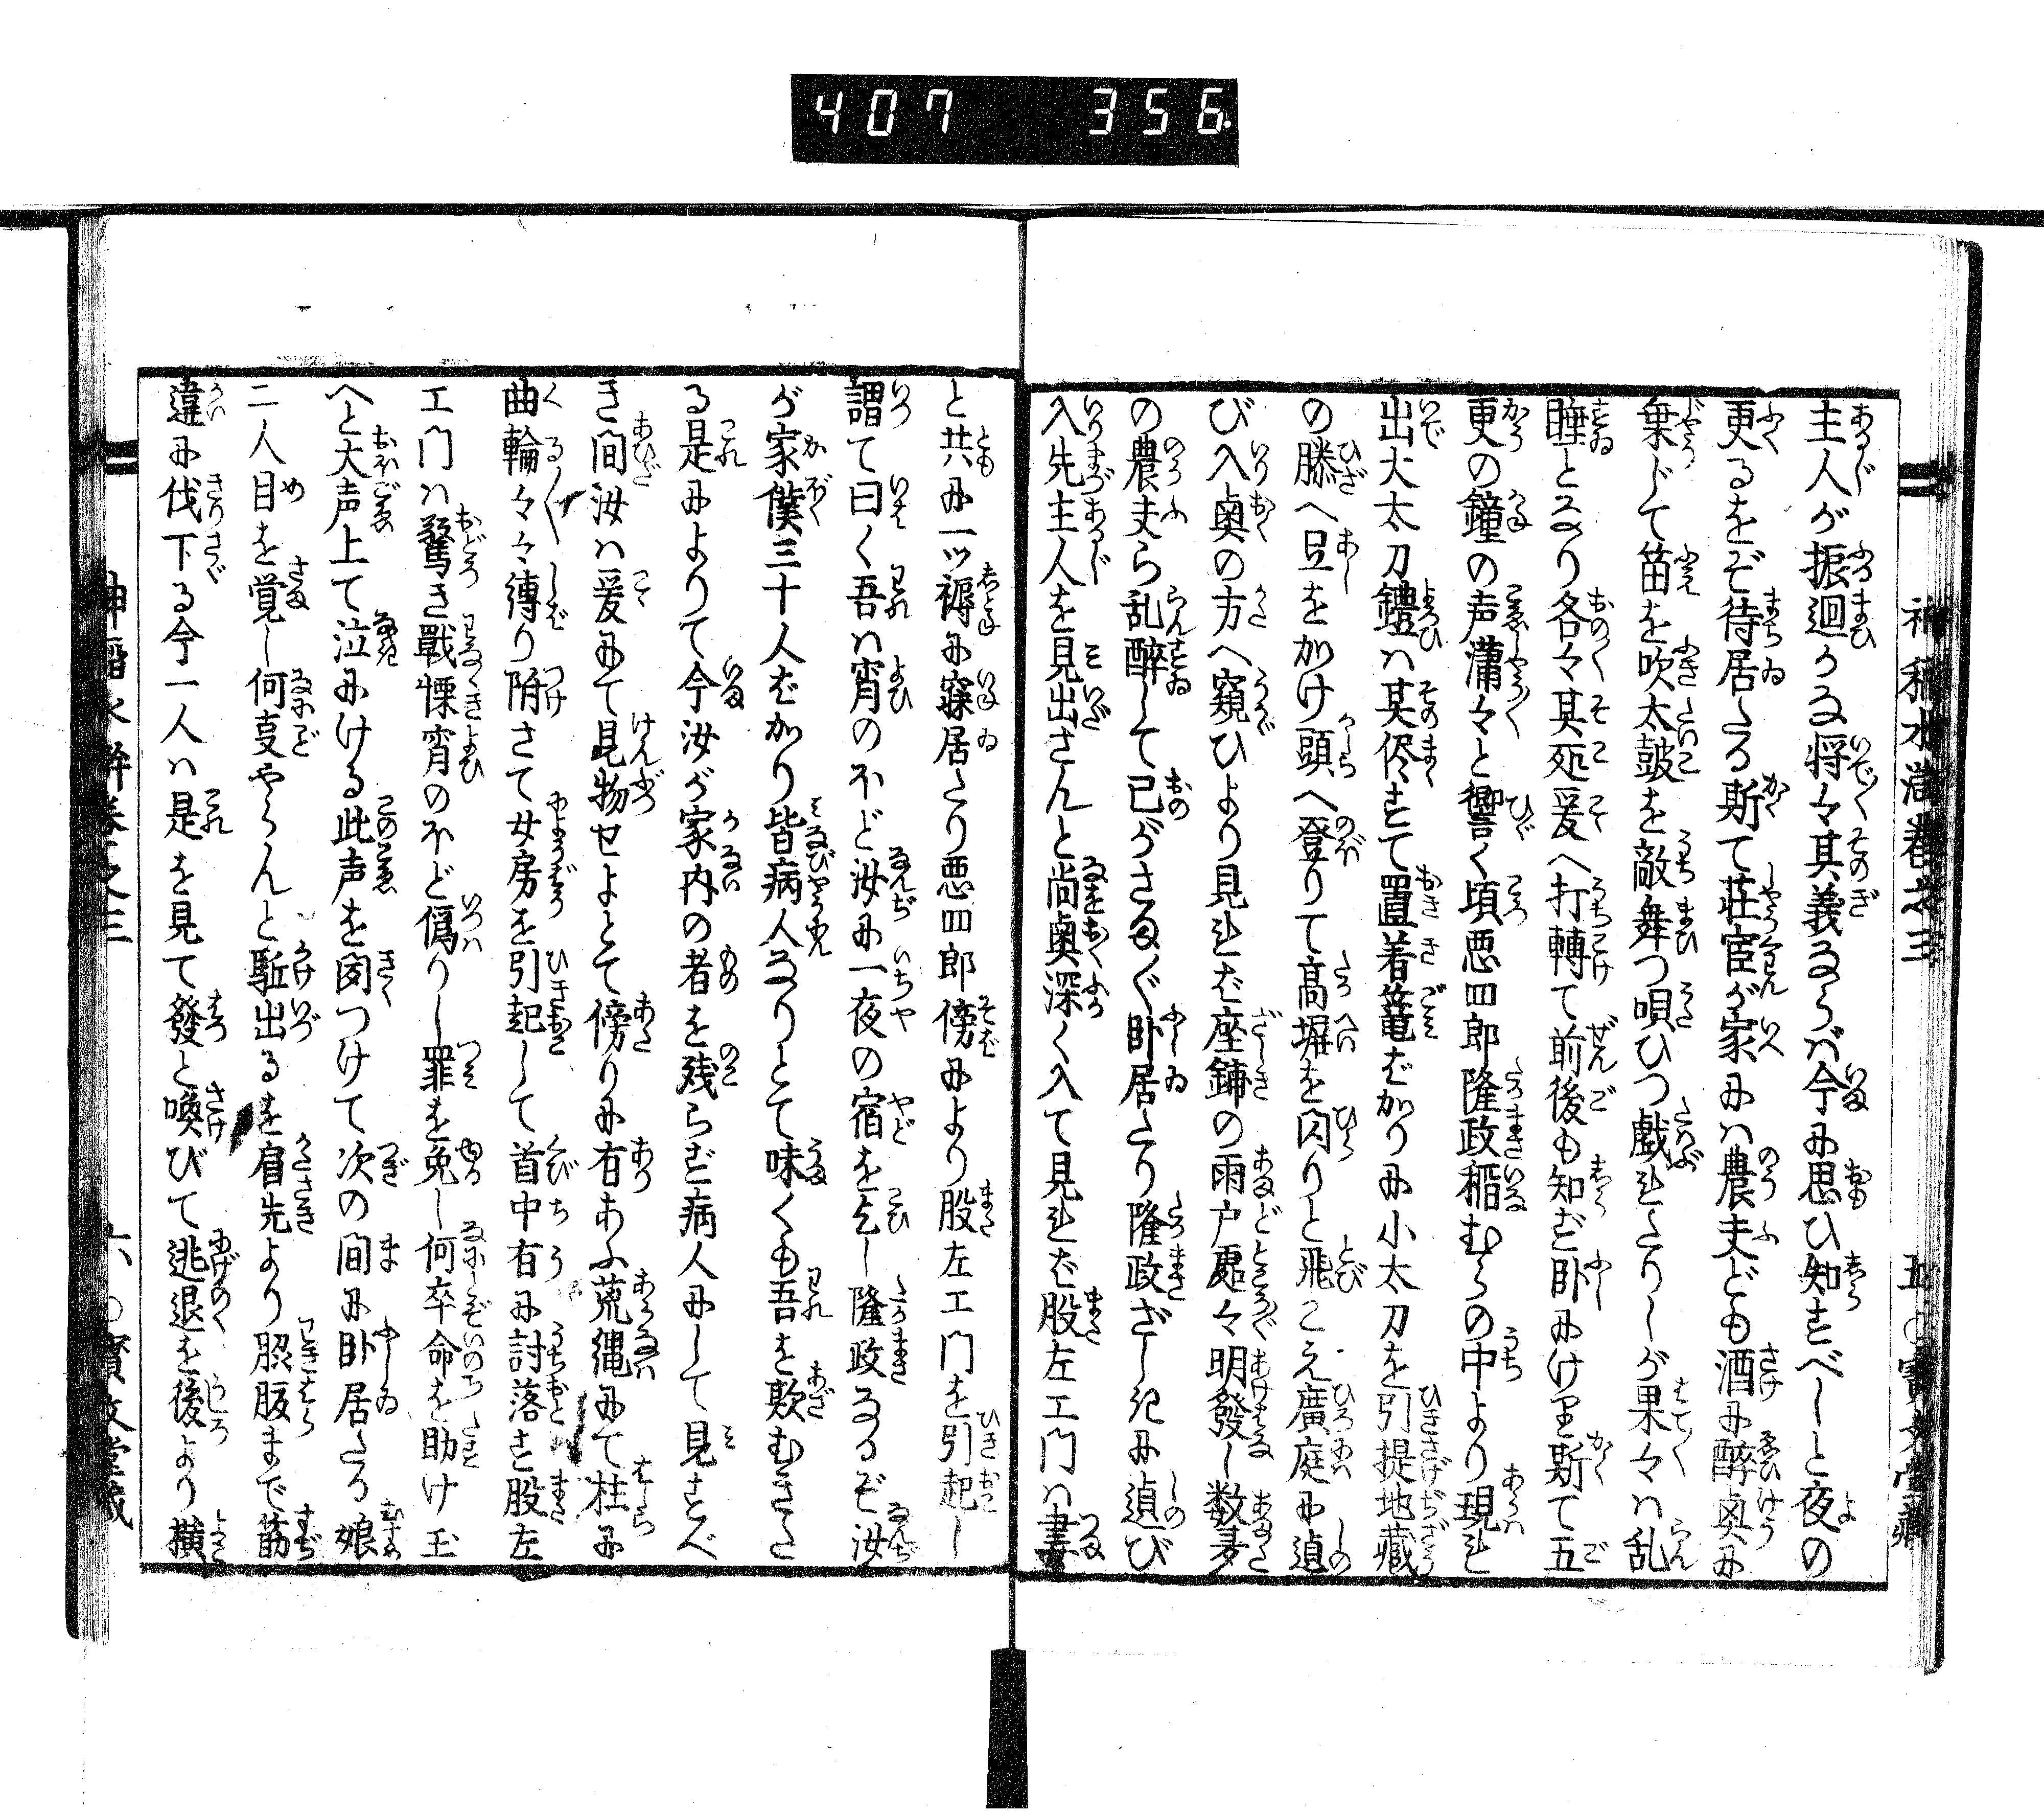 407 356
神稲水滸巻之三 五 ○寶文堂蔵
主人が振廻かな将々其義ならバ今に思ひ知すべしと夜の
更るをぞ待居たる斯て荘官が家にハ農夫ども酒に酔興に
乗じて笛を吹太皷を敲舞つ唄ひつ戯れたりしが果々ハ乱
睡となり各々其処爰へ打轉て前後も知ず卧にけり斯て五
更の鐘の声蕭々と響く頃悪四郎隆政稲むらの中より現れ
出大太刀鎧ハ其侭すて置着篭ばかりに小太刀を引提地藏
の膝へ足をかけ頭へ登りて高塀を閃りと飛こえ廣庭に遉
び入奥の方へ窺ひより見れば座鋪の雨戸処々明發し数多
の農夫ら乱醉して己がさまゞ卧居たり隆政ざしきに遉び
入先主人を見出さんと尚奥深く入て見れば股左エ門ハ妻
と共に一ツ褥に寐居たり悪四郎傍により股左エ門を引起し
謂て曰く吾ハ宵のほど汝に一夜の宿を乞し隆政なるぞ汝
が家僕三十人ばかり皆病人なりとて味くも吾を欺むきた
る是によりて今汝が家内の者を残らず病人にして見すべ
き間汝ハ爰にて見物せよとて傍りに有あふ荒縄にて柱に
曲輪々々縛り附さて女房を引起して首中有に討落す股左
エ門ハ驚き戰慄宵のほど偽りし罪を免し何卒命を助け玉
へと大声上て泣にける此声を聞つけて次の間に卧居たる娘
二人目を覚し何事やらんと駈出るを肩先より脇腹まで筋
違に伐下る今一人ハ是を見て發と喚びて逃退を後より横
神稲水滸巻之三 六 ○寶文堂蔵